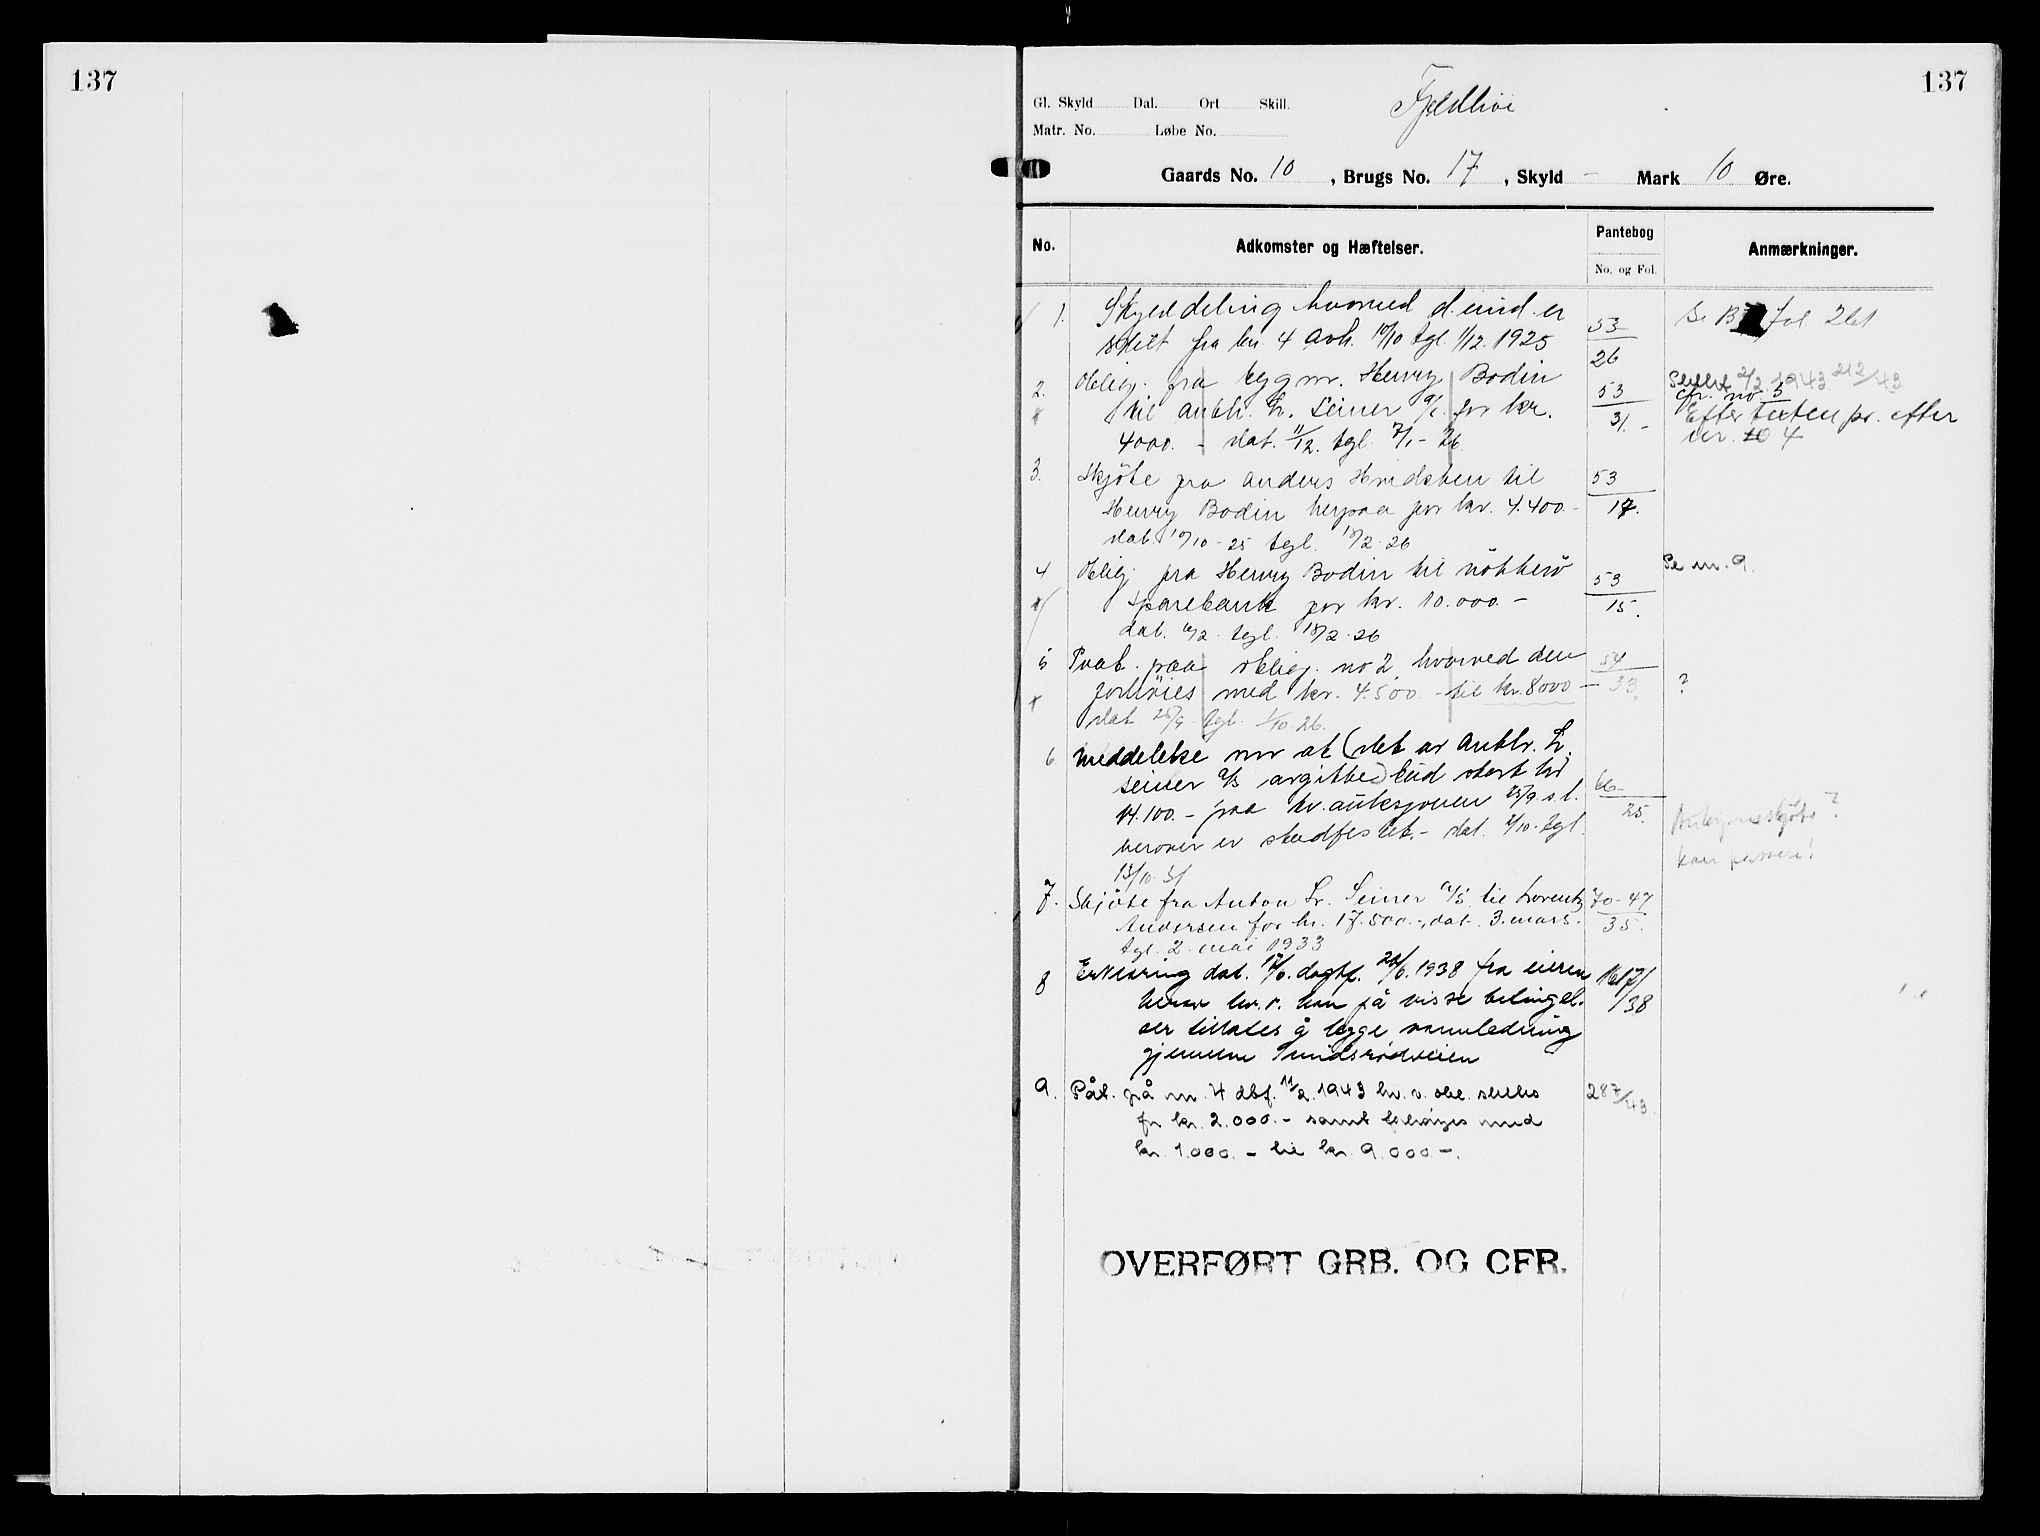 137
137
Gl. Skyld Dal. Ort Skill.
Matr. No. Løbe No.
Gaards No. 10, Brugs No. 17, Skyld - Mark 10 Øre.
No.
Adkomster og Hæftelser.
Pantebog
No. og Fol.
Anmærkninger.
1. Skylddeling hvorved d. eiend. er
skilt fra br. 4 avh. 10/10 tgl. 1/12. 1925
53
26
Se B Fol. 261
2. Oblig. fra bygm. Henry Bodin
til Anth. Lr. Seiner A/S for kr.
4000. - dat. 11/12. tgl. 7/1 - 26
53
31. -
Slettet 2/2 1943 212/43
cfr. no 5
Efter teten pr. efter
nr. 4
3. Skjöte fra Anders Hvidsten til
Henry Bodin herpaa for kr. 4.400. -
dat. 10/10 - 25 tgl. 18/2 - 26
53
17.
4 Oblig fra Henry Bodin til Nötterö
Sparebank for kr. 10.000. -
dat. 6/2. tgl. 18/2. 26
53
15.
Se nr. 9.
5 Paat. paa oblig. no 2 hvorved den
forhöies med kr. 4.500. - til kr. 8000 -
dat. 25/9. tgl. 1/10. 26.
54
33.
?
6. Meddelelse om at (det av Anthr. Lr.
Seiner A/S avgitte) bud stort kr
14.100. - paa tv. auksjonen 25/9 s. l.
herover er stadfestet. - dat. 2/10. tgl.
13/10. 31
66
25.
Auksjonsskjöte?
kan passere!
7. Skjöte fra Anton Lr. Seiner A/S til Lorentz
Andersen for kr. 17.500. -, dat. 3. mars.
tgl. 2. mai 1933
70-47
35.
8 Erklæring dat. 17/6. dagbf. 20/6. 1938 fra eieren
herav hv. v. han på visse betingel-
ser tillates å legge vannledning
gjennem Smidsrödveien
1617/
/38
9. Påt. på nr. 4 dbf. 11/2. 1943 hv. v. obl. slettes
for kr. 2.000. - samt forhöyes med
kr. 1.000. - til kr. 9.000 -.
287/43.
OVERFØRT GRB. OG CFR.